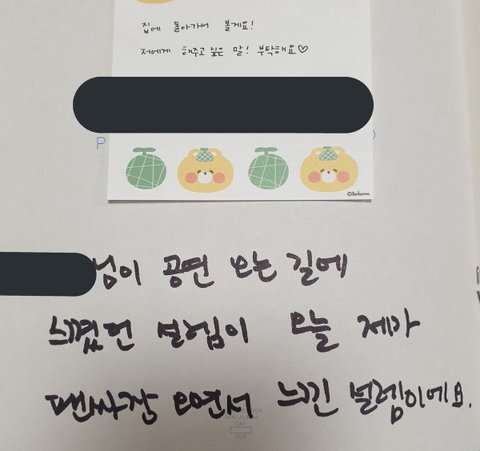 집에 돌아가서 볼게요!
저에게 해주고 싶은 말! 부탁해요♡
P
님이 공연 오는 길에
느꼈던 설렘이 오늘 제가
팬싸장 오면서 느낀 설렘이에요.